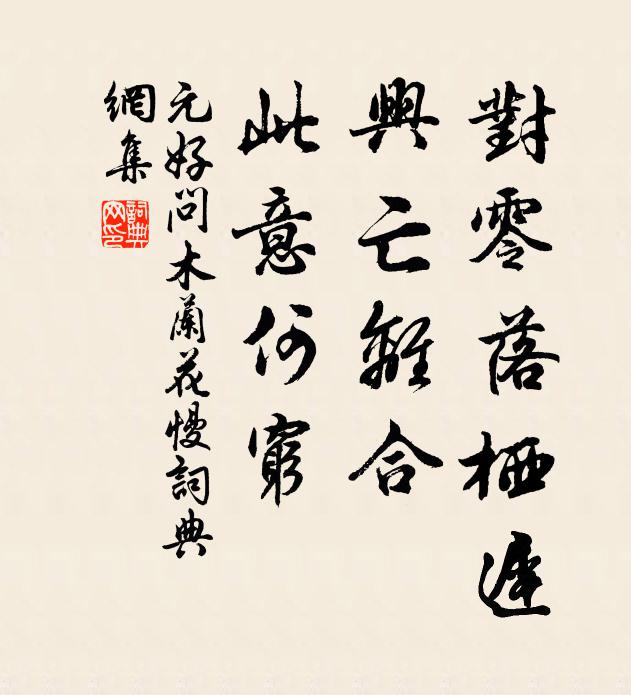 對零落栖遲
興亡離合
此意何窮
元好問木蘭花慢詞典
網集
詞典
网印